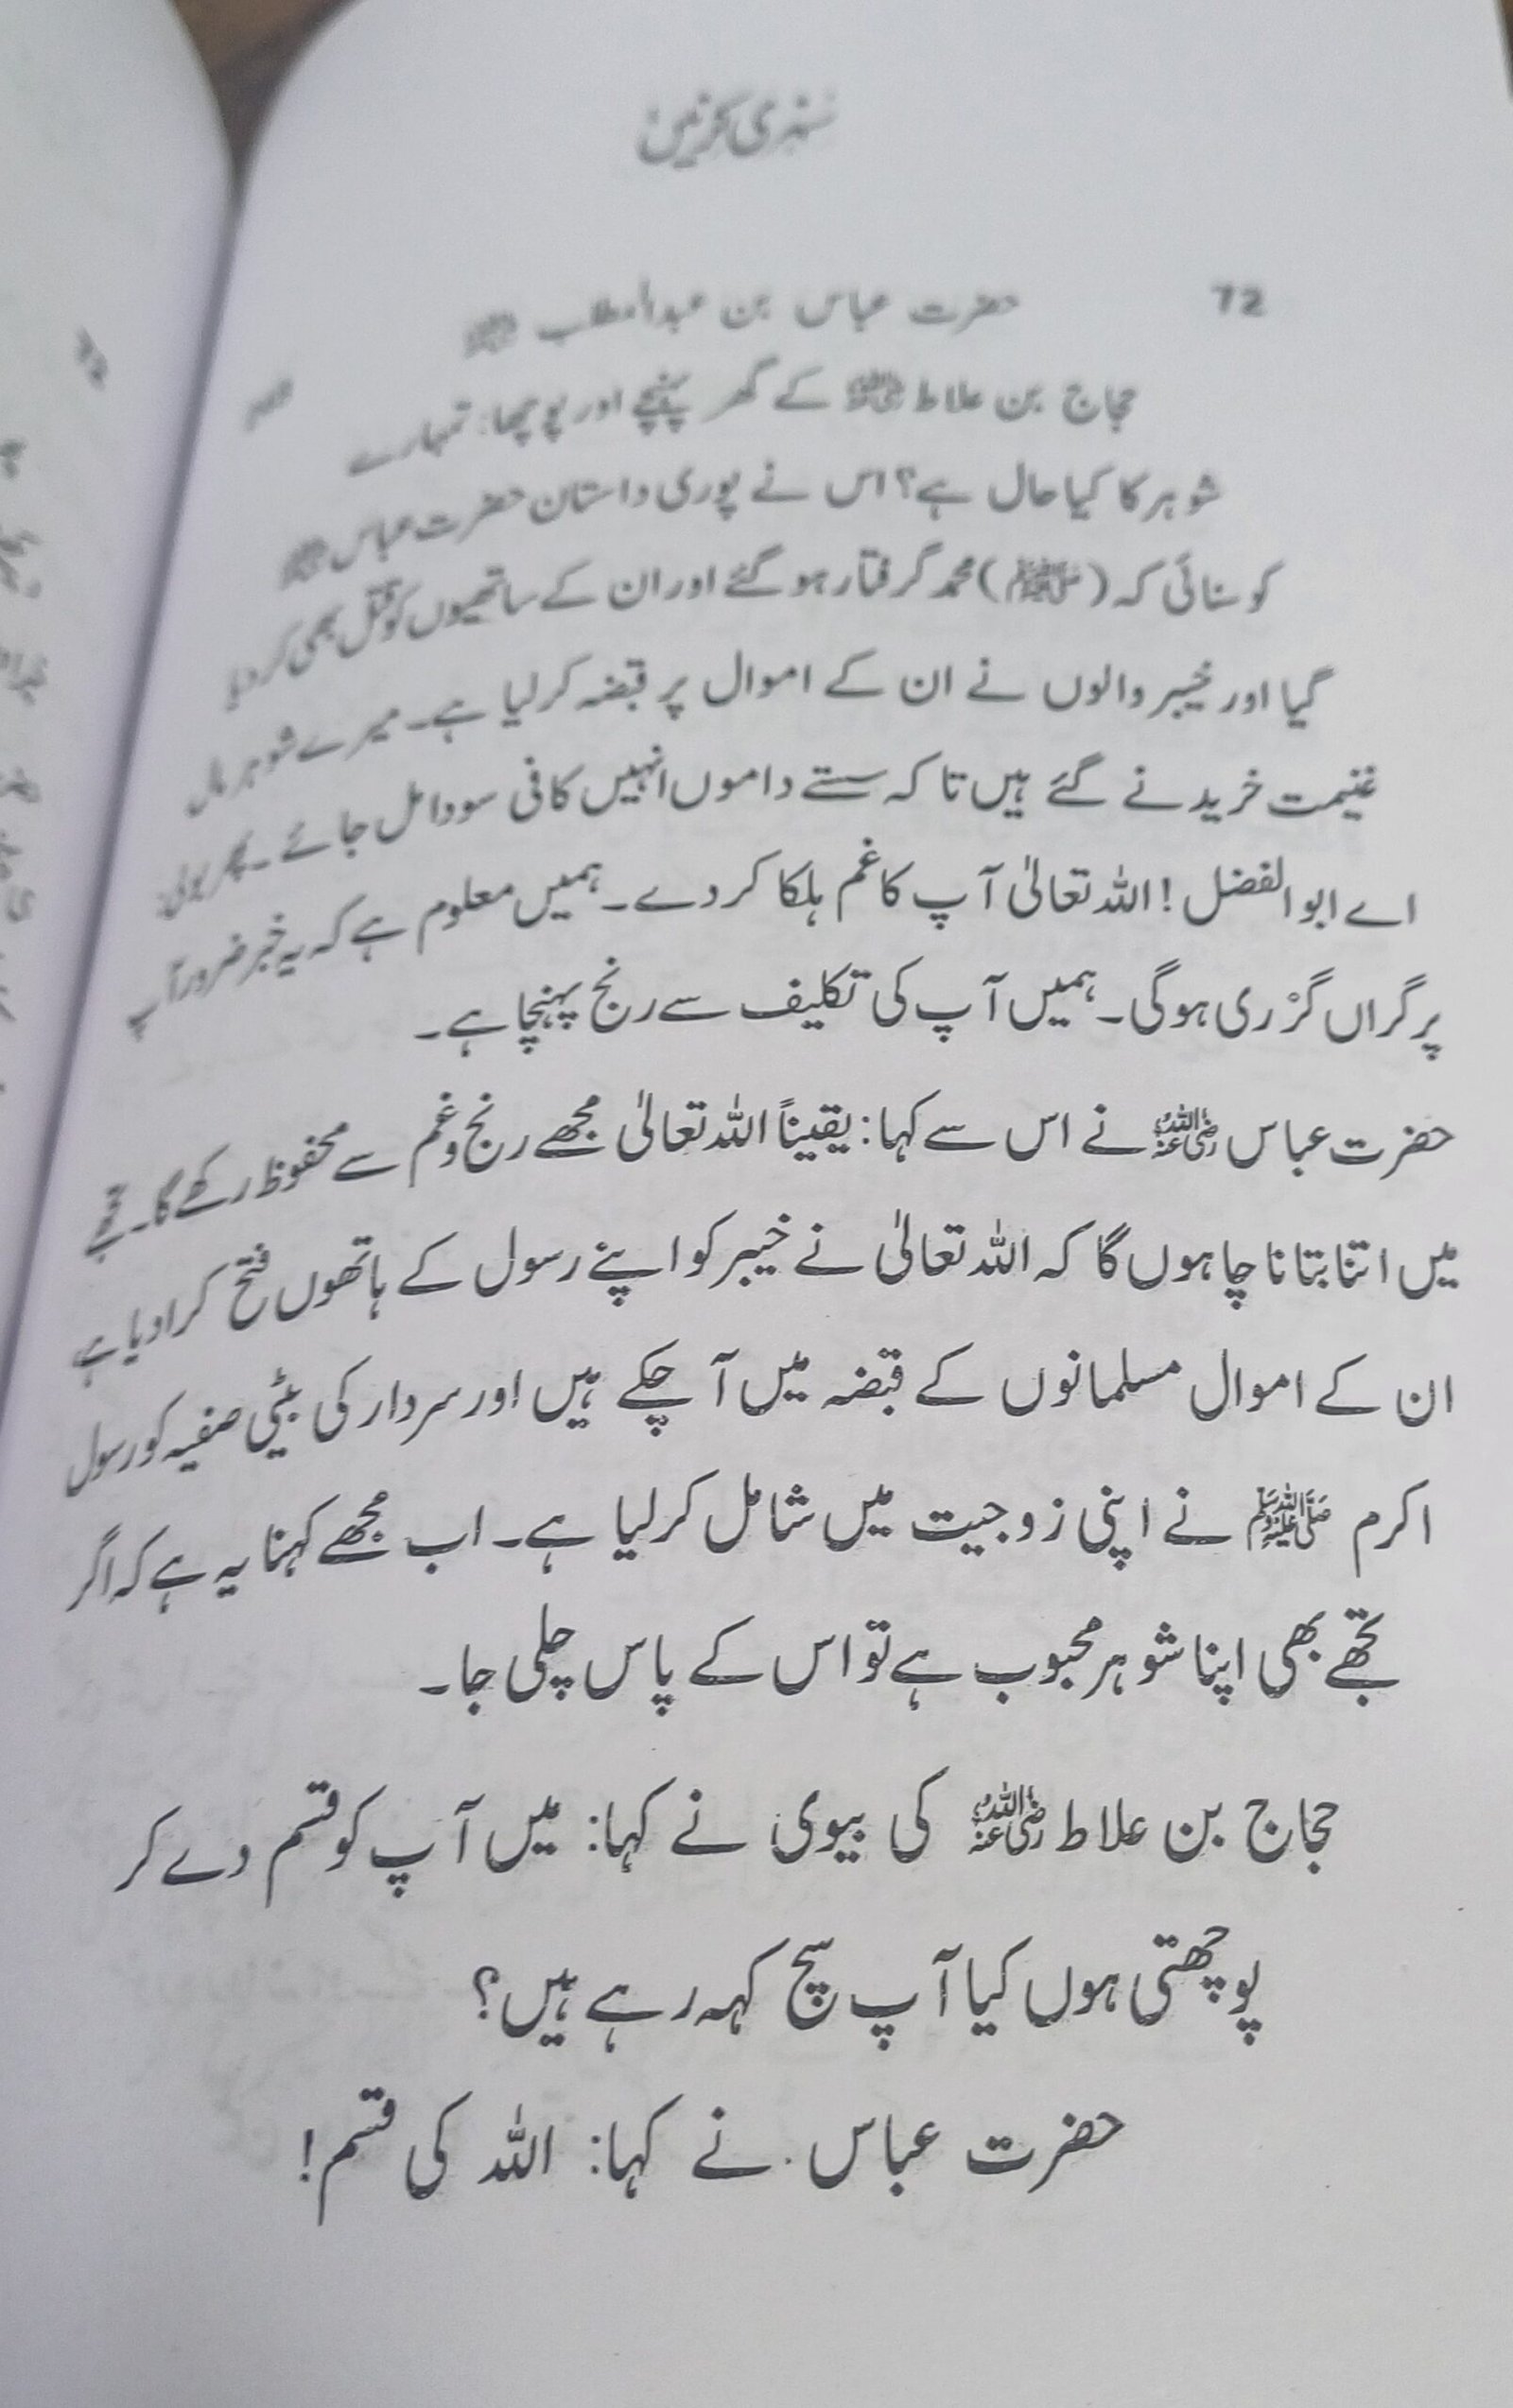 سنہری کرنیں
72
حضرت عباس بن عبدالمطلب رضی اللہ عنہ
حجاج بن علاط رضی اللہ عنہ کے گھر پہنچے اور پوچھا: تمہارے
شوہر کا کیا حال ہے؟ اس نے پوری داستان حضرت عباس رضی اللہ عنہ
کو سنائی کہ (صلی اللہ علیہ وسلم) محمد گرفتار ہو گئے اور ان کے ساتھیوں کو قتل بھی کر دیا
گیا اور خیبر والوں نے ان کے اموال پر قبضہ کر لیا ہے۔ میرے شوہر مال
غنیمت خریدنے گئے ہیں تا کہ سستے داموں انہیں کافی سودا مل جائے۔ پھر بولی:
اے ابوالفضل! اللہ تعالیٰ آپ کا غم ہلکا کر دے۔ ہمیں معلوم ہے کہ یہ خبر ضرور آپ
پر گراں گزری ہوگی۔ ہمیں آپ کی تکلیف سے رنج پہنچا ہے۔
حضرت عباس رضی اللہ عنہ نے اس سے کہا: یقیناً اللہ تعالیٰ مجھے رنج و غم سے محفوظ رکھے گا۔ تجھے
میں اتنا بتانا چاہوں گا کہ اللہ تعالیٰ نے خیبر کو اپنے رسول کے ہاتھوں فتح کرا دیا ہے
ان کے اموال مسلمانوں کے قبضہ میں آ چکے ہیں اور سردار کی بیٹی صفیہ کو رسول
اکرم صلی اللہ علیہ وسلم نے اپنی زوجیت میں شامل کر لیا ہے۔ اب مجھے کہنا یہ ہے کہ اگر
تجھے بھی اپنا شوہر محبوب ہے تو اس کے پاس چلی جا۔
حجاج بن علاط رضی اللہ عنہ کی بیوی نے کہا: میں آپ کو قسم دے کر
پوچھتی ہوں کیا آپ سچ کہہ رہے ہیں؟
حضرت عباس نے کہا: اللہ کی قسم!